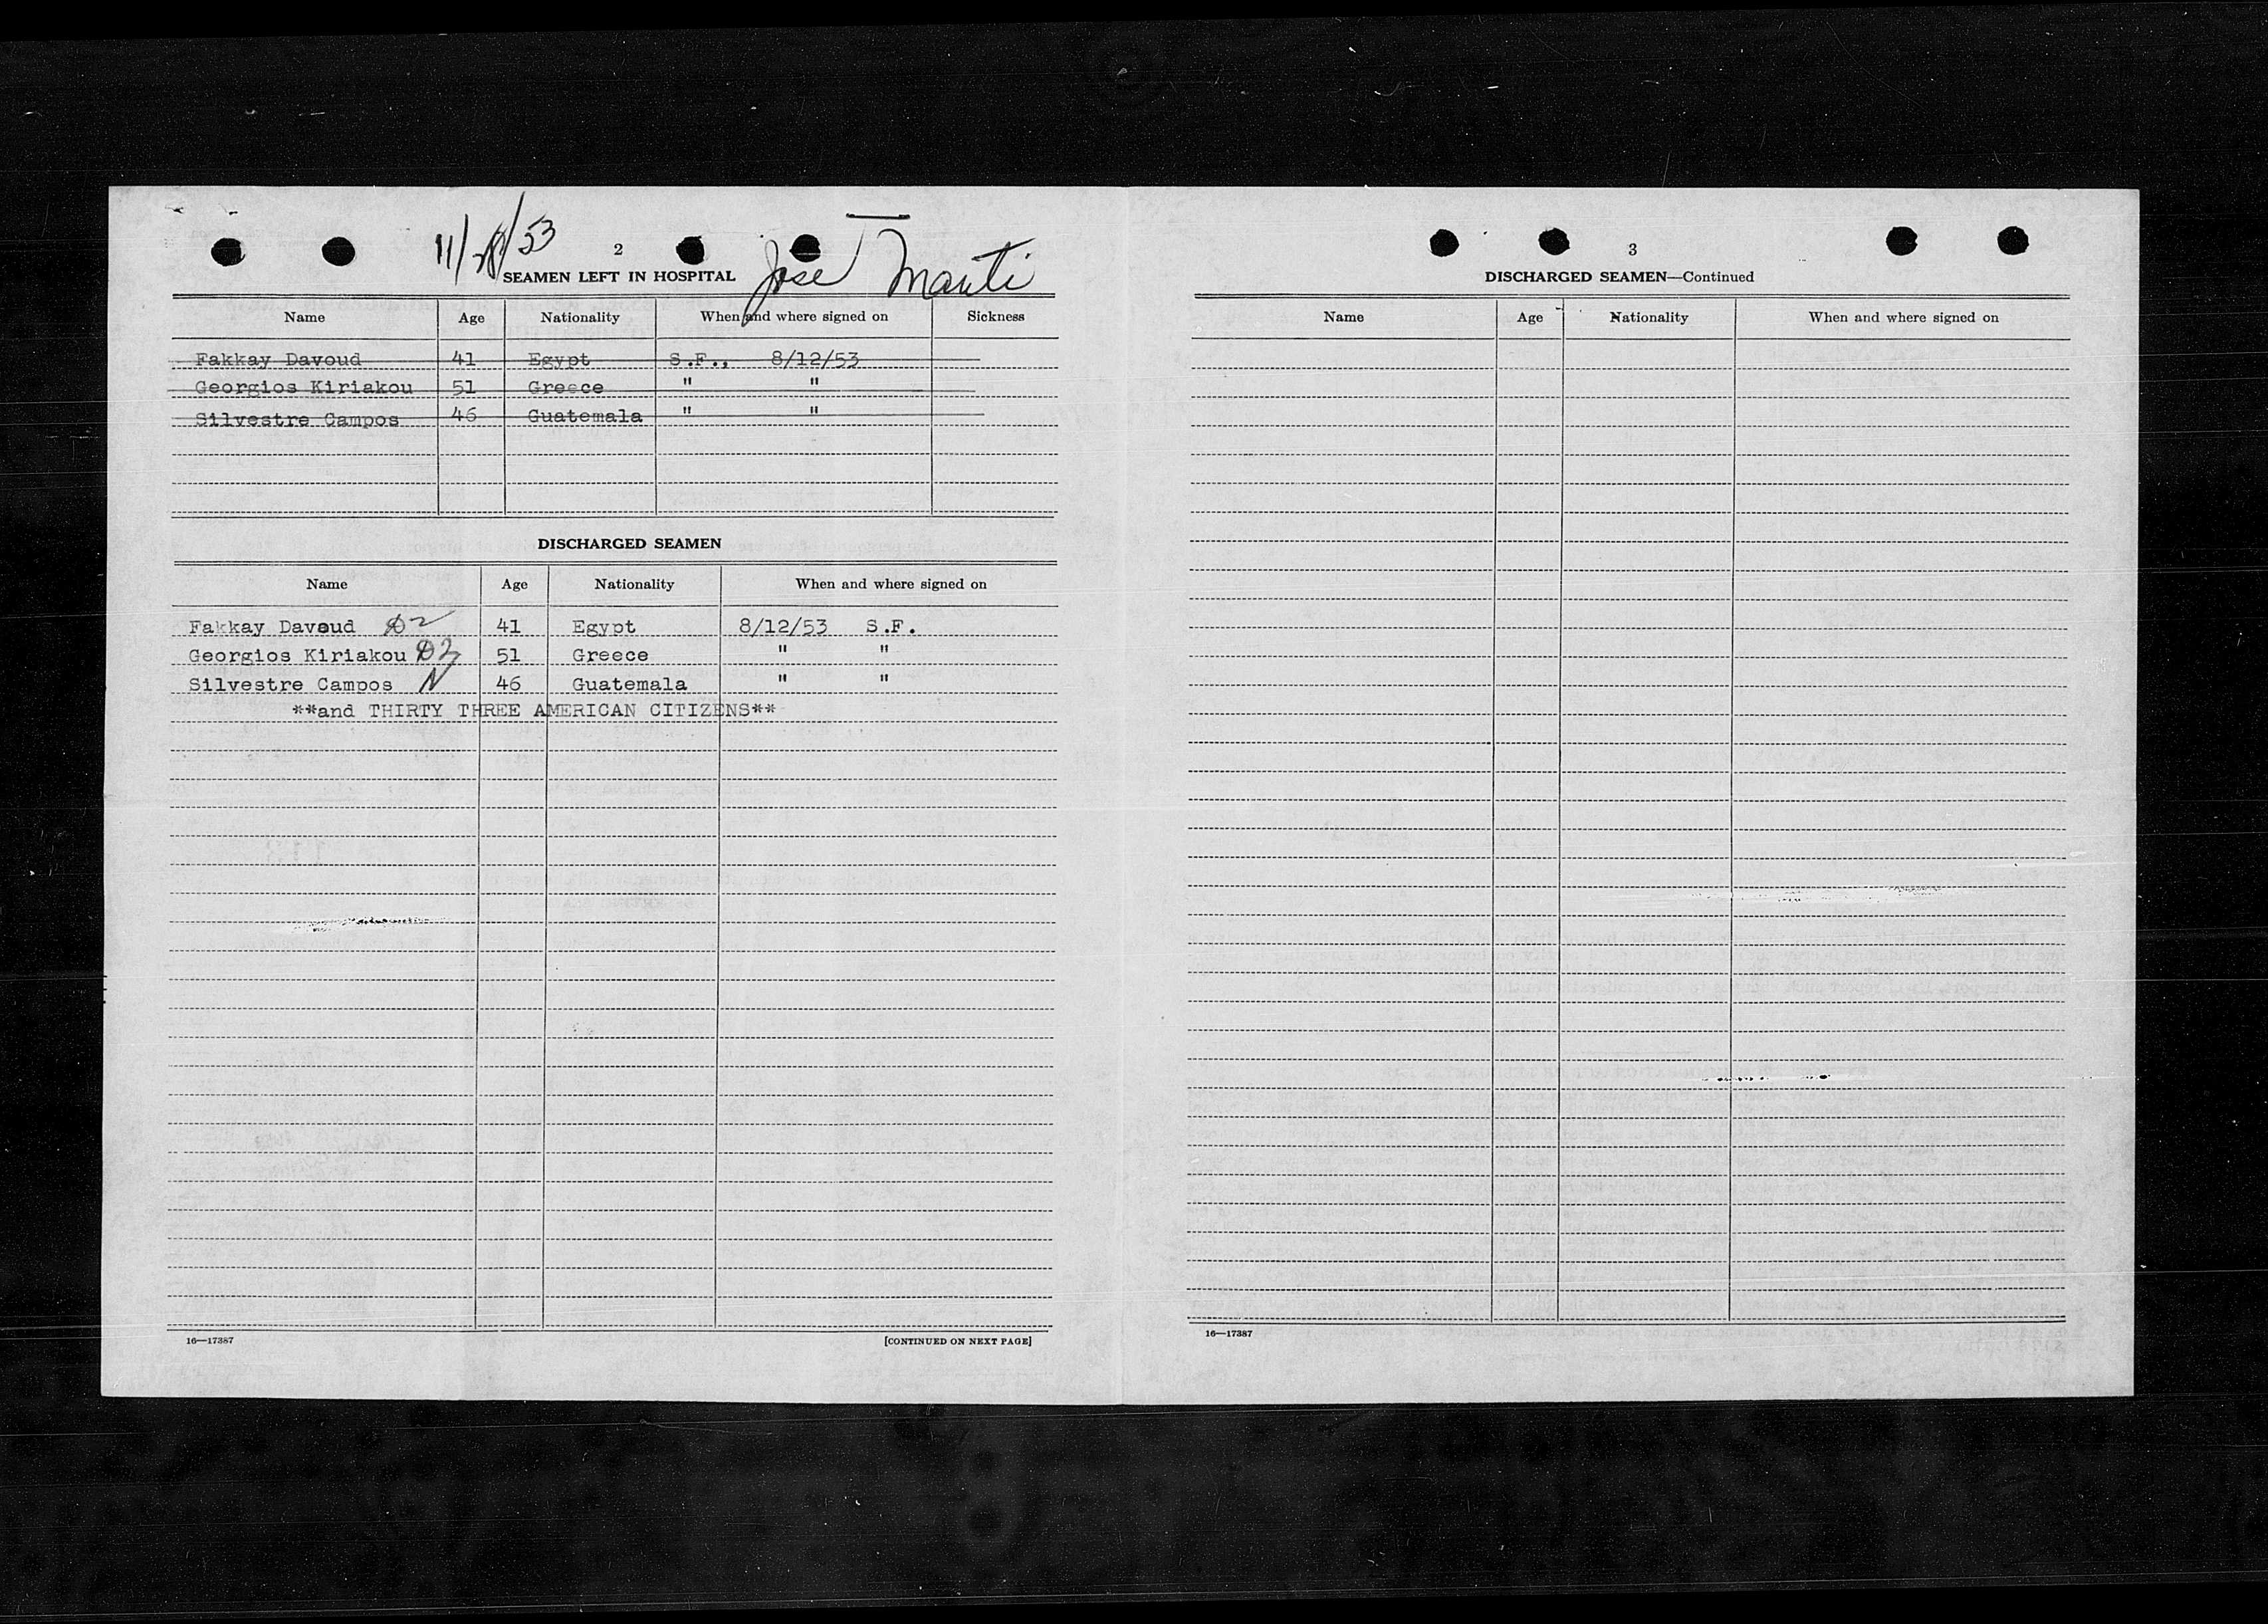 11/28/53
2
Jose Marti
SEAMEN LEFT IN HOSPITAL
Name Age Nationality When and where signed on Sickness
Fakkay Davoud 41 Egypt S.F., 8/12/53
Georgios Kiriakou 51 Greece " "
Silvestre Campos 46 Guatemala " "
DISCHARGED SEAMEN
Name Age Nationality When and where signed on
Fakkay Davoud D2 41 Egypt 8/12/53 S.F.
Georgios Kiriakou D2 51 Greece " "
Silvestre Campos N 46 Guatemala " "
**and THIRTY THREE AMERICAN CITIZENS**
16—17387 [CONTINUED ON NEXT PAGE]
3
DISCHARGED SEAMEN—Continued
Name Age Nationality When and where signed on
16—17387